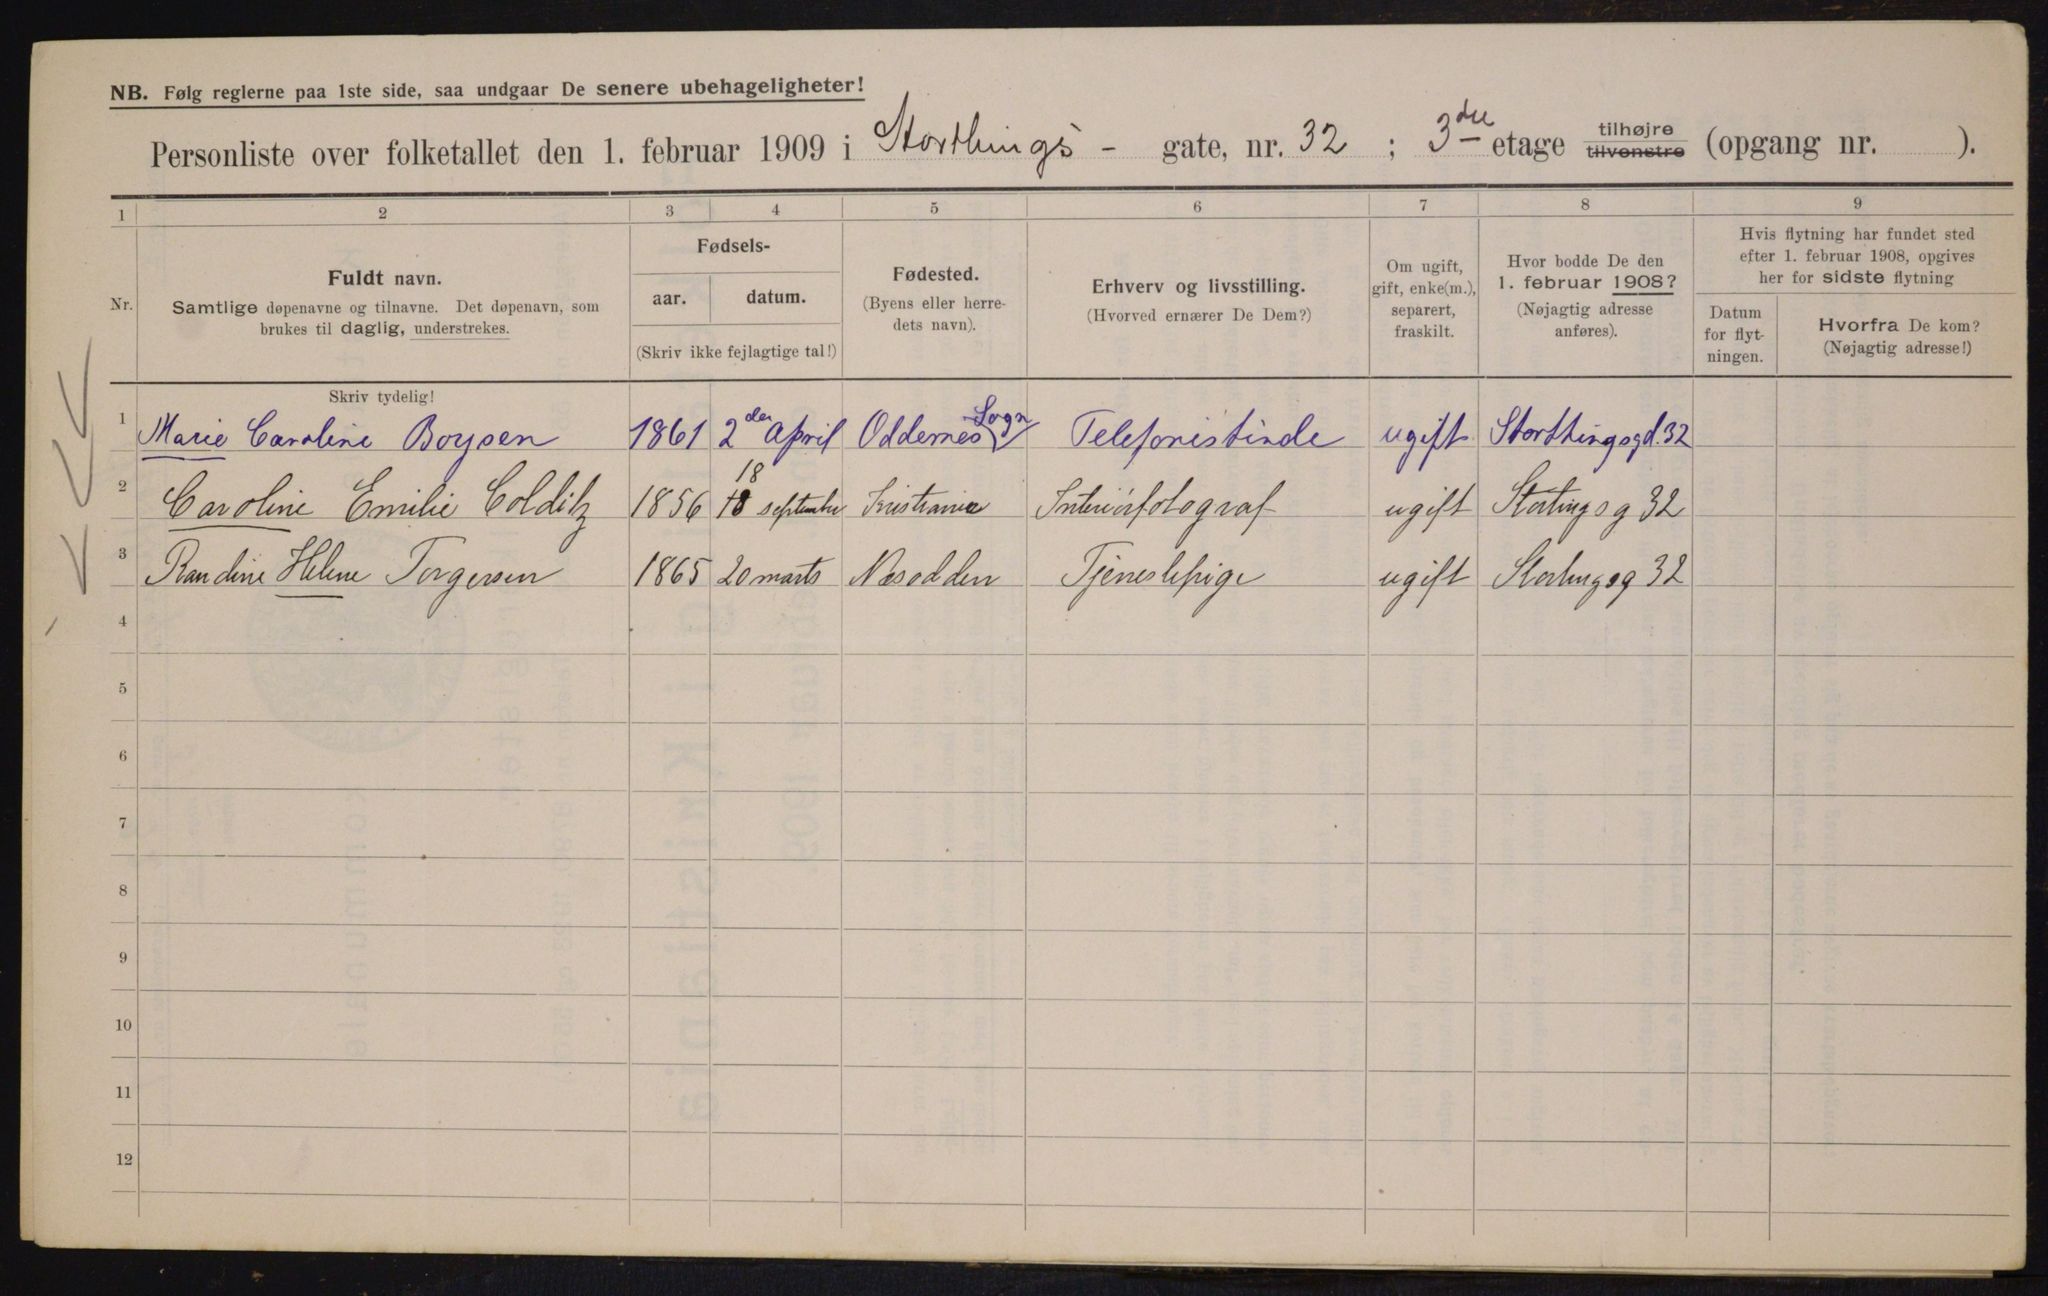 NB. Følg reglerne paa 1ste side, saa undgaar De senere ubehageligheter!
Personliste over folketallet den 1. februar 1909 i Storthings - gate, nr. 32 ; 3die etage tilhøjre tilvenstre (opgang nr. ).
1 2 3 4 5 6 7 8 9
Nr.
Fuldt navn.
Samtlige døpenavne og tilnavne. Det døpenavn, som
brukes til daglig, understrekes.
Fødsels-
aar. datum.
(Skriv ikke fejlagtige tal!)
Fødested.
(Byens eller herre-
dets navn).
Erhverv og livsstilling.
(Hvorved ernærer De Dem?)
Om ugift,
gift, enke(m.),
separert,
fraskilt.
Hvor bodde De den
1. februar 1908?
(Nøjagtig adresse
anføres).
Hvis flytning har fundet sted
efter 1. februar 1908, opgives
her for sidste flytning
Datum
for flyt-
ningen.
Hvorfra De kom?
(Nøjagtig adresse!)
Skriv tydelig!
1 Marie Caroline Boysen 1861 2den April Oddernes Sogn Telefonistinde ugift Storthingsgd. 32
2 Caroline Emilie Colditz 1856 18 18 september Kristiania Interiørfotograf ugift Stortingsg 32
3 Randine Helene Torgersen 1865 20 marts Næsodden Tjenestepige ugift Stortingsg 32
4
5
6
7
8
9
10
11
12